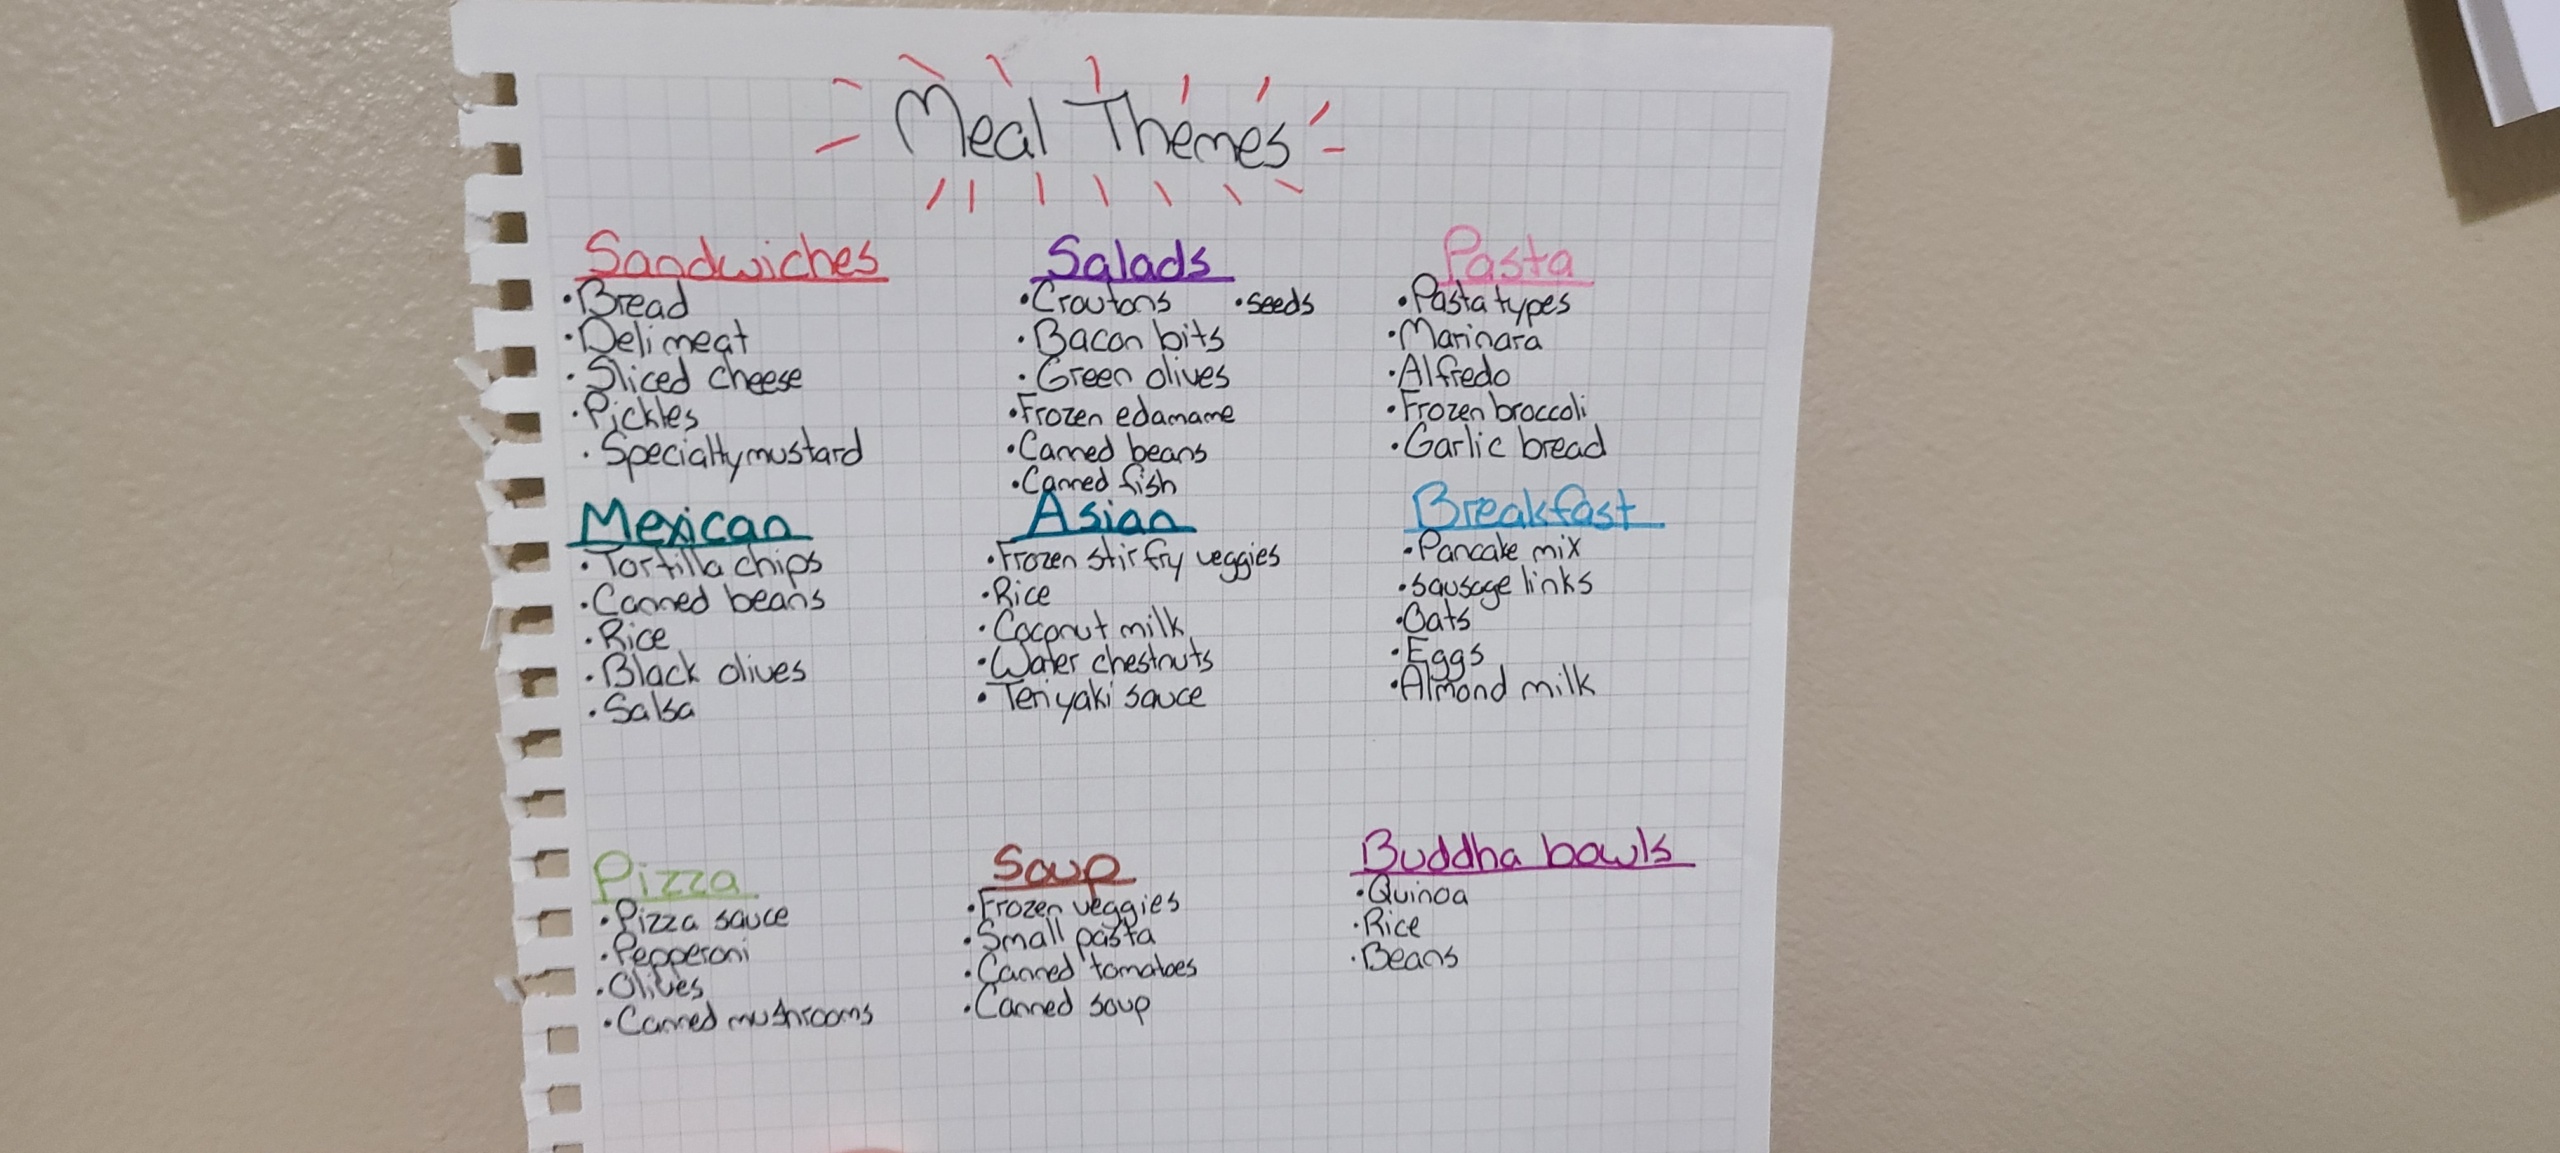 Meal Themes
Sandwiches
•Bread
•Deli meat
•Sliced cheese
•Pickles
•Specialty mustard
Salads
•Croutons •seeds
•Bacon bits
•Green olives
•Frozen edamame
•Canned beans
•Canned fish
Pasta
•Pasta types
•Marinara
•Alfredo
•Frozen broccoli
•Garlic bread
Mexican
•Tortilla chips
•Canned beans
•Rice
•Black olives
•Salsa
Asian
•Frozen stir fry veggies
•Rice
•Coconut milk
•Water chestnuts
•Teriyaki sauce
Breakfast
•Pancake mix
•sausage links
•Oats
•Eggs
•Almond milk
Pizza
•Pizza sauce
•Pepperoni
•Olives
•Canned mushrooms
Soup
•Frozen veggies
•Small pasta
•Canned tomatoes
•Canned soup
Buddha bowls
•Quinoa
•Rice
•Beans